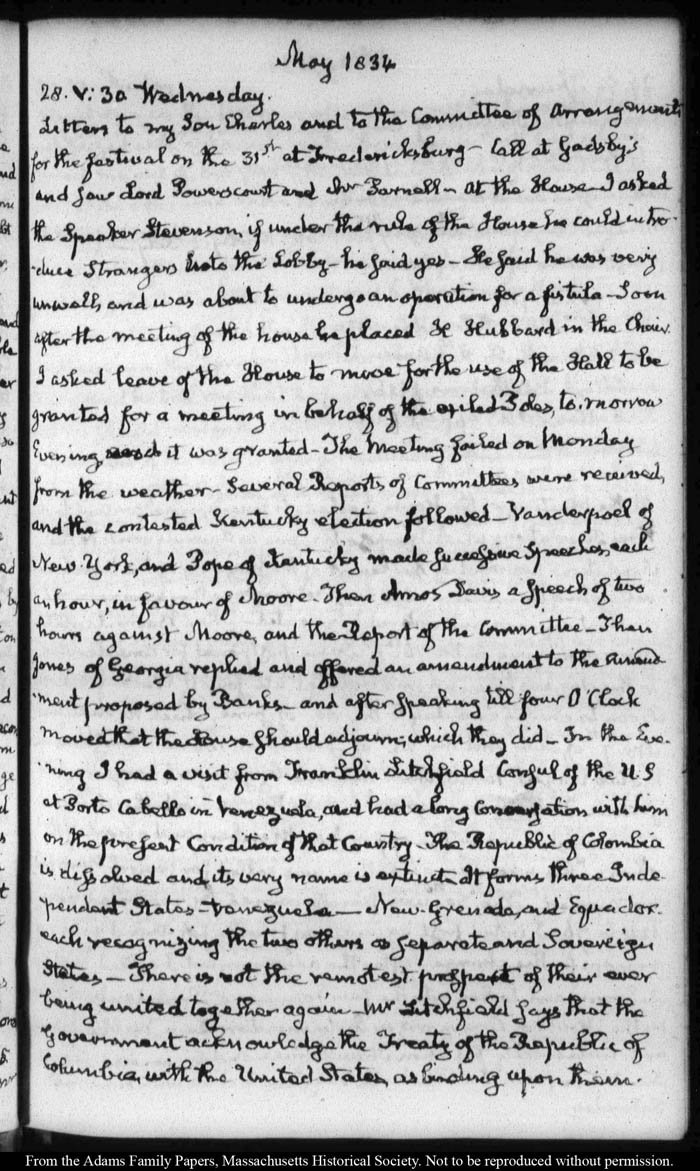 May 1834
28. V: 30 Wednesday.
Letters to my Son Charles and to the Committee of Arrangements
for the festival on the 31st at Fredericksburg - Call at Gadsby's
and saw Lord Powerscourt and Mr Parnell - At the House I asked
the Speaker Stevenson, if under the rule of the House he could intro-
-duce Strangers into the Lobby - he said yes - He said he was very
unwell, and was about to undergo an operation for a fistula - Soon
after the meeting of the house he placed H Hubbard in the Chair.
I asked leave of the House to move for the use of the Hall to be
granted for a meeting in behalf of the exiled Poles, to-morrow
Evening, it was granted - The Meeting failed on Monday
from the weather - Several Reports of Committees were received,
and the contested Kentucky election followed - Vanderpoel of
New-York, and Pope of Kentucky made successive Speeches, each
an hour, in favour of Moore. Then Amos Davis a speech of two
hours against Moore, and the Report of the Committee - Then
Jones of Georgia replied and offered an amendment to the amend-
-ment proposed by Banks - and after speaking till four O'Clock
moved that the House should adjourn; which they did - In the Eve-
-ning I had a visit from Franklin Litchfield Consul of the U S
at Porto Cabello in Venezuela, and had a long conversation with him
on the present Condition of that Country - The Republic of Colombia
is dissolved and its very name is extinct. It forms three Inde-
-pendent States - Venezuela - New-Grenada, and Equador.
each recognizing the two others as separate and Sovereign
States - There is not the remotest prospect of their ever
being united together again - Mr Litchfield says that the
Government acknowledge the Treaty of the Republic of
Columbia, with the United States, as binding upon them.
From the Adams Family Papers, Massachusetts Historical Society. Not to be reproduced without permission.